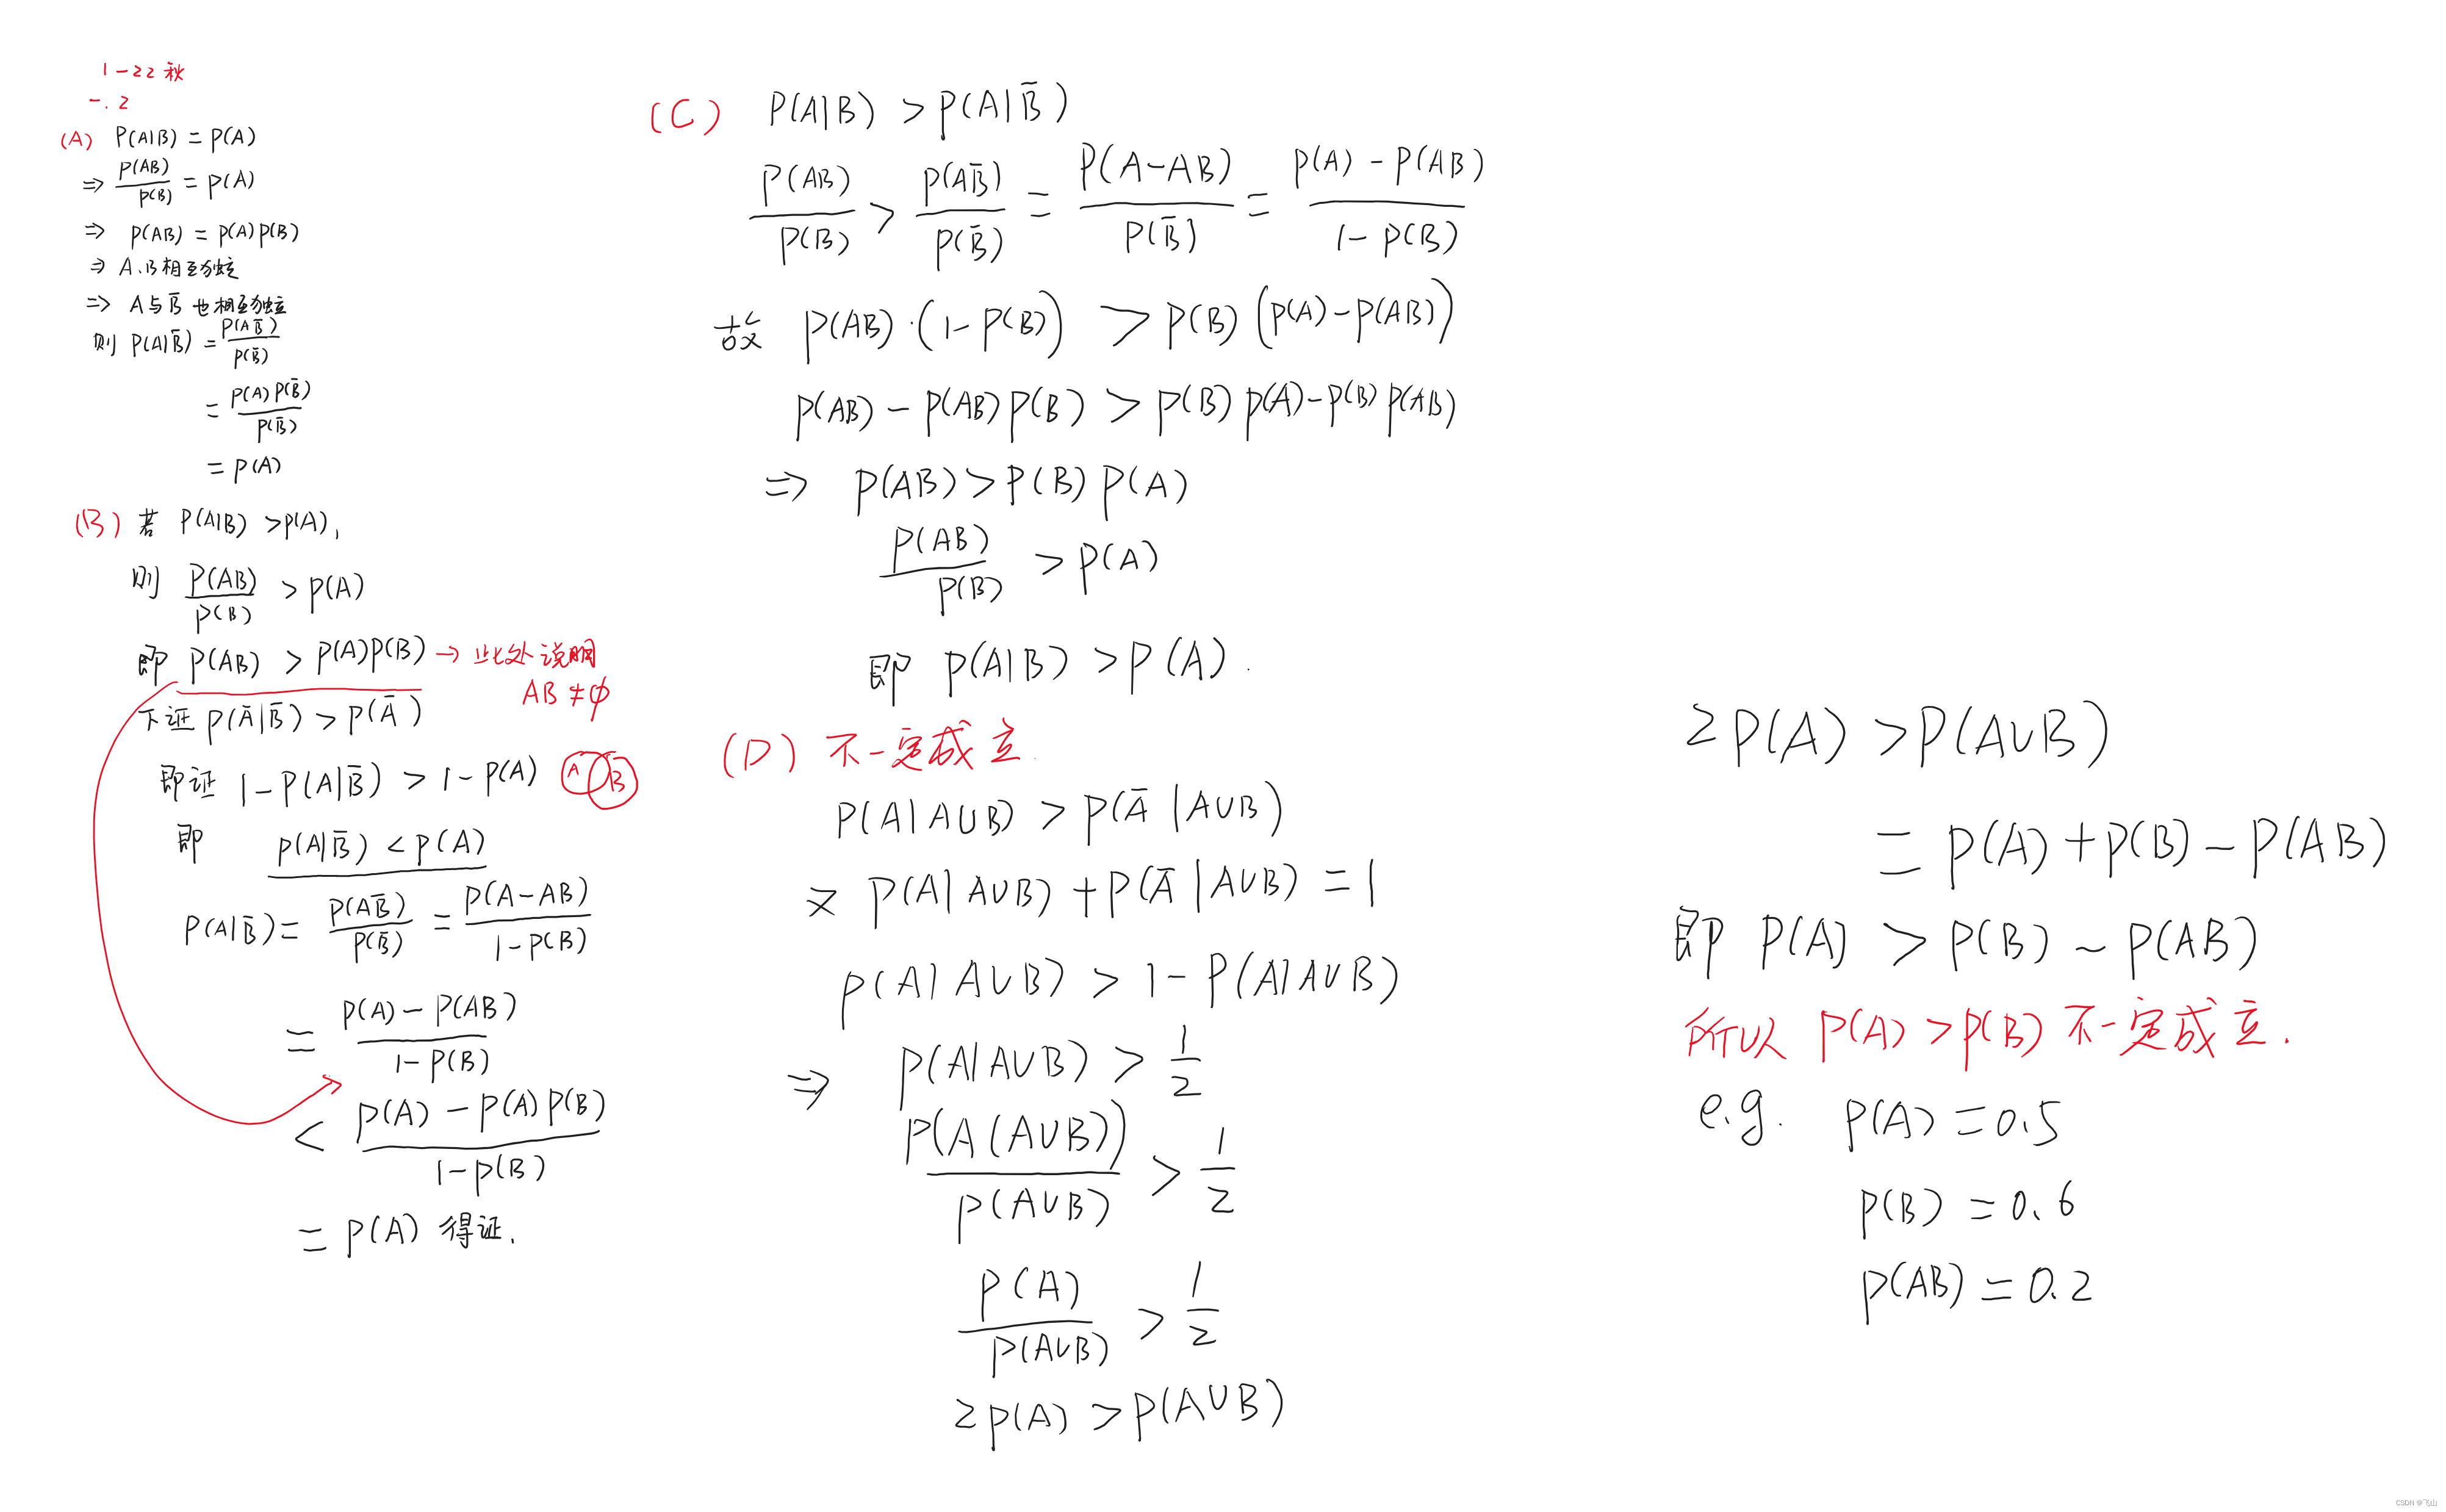 1-22秋
一.2
(A) P(A|B) = P(A)
⇒ P(AB)/P(B) = P(A)
⇒ P(AB) = P(A)P(B)
⇒ A、B相互独立
⇒ A与B̄也相互独立
则 P(A|B̄) = P(AB̄)/P(B̄)
= P(A)P(B̄)/P(B̄)
= P(A)
(B) 若 P(A|B) > P(A),
则 P(AB)/P(B) > P(A)
即 P(AB) > P(A)P(B) → 此处说明
AB ≠ ϕ
下证 P(Ā|B̄) > P(Ā)
即证 1-P(A|B̄) > 1-P(A) A B
即 P(A|B̄) < P(A)
P(A|B̄) = P(AB̄)/P(B̄) = P(A-AB)/1-P(B)
= P(A)-P(AB)/1-P(B)
< P(A)-P(A)P(B)/1-P(B)
= P(A) 得证.
(C) P(A|B) > P(A|B̄)
P(AB)/P(B) > P(AB̄)/P(B̄) = P(A-AB)/P(B̄) = P(A)-P(AB)/1-P(B)
故 P(AB)·(1-P(B)) > P(B)(P(A)-P(AB))
P(AB)-P(AB)P(B) > P(B)P(A)-P(B)P(AB)
⇒ P(AB) > P(B)P(A)
P(AB)/P(B) > P(A)
即 P(A|B) > P(A).
(D) 不一定成立.
P(A|A∪B) > P(Ā|A∪B)
又 P(A|A∪B) + P(Ā|A∪B) = 1
P(A|A∪B) > 1-P(A|A∪B)
⇒ P(A|A∪B) > 1/2
P(A(A∪B))/P(A∪B) > 1/2
P(A)/P(A∪B) > 1/2
2P(A) > P(A∪B)
2P(A) > P(A∪B)
= P(A)+P(B)-P(AB)
即 P(A) > P(B)-P(AB)
所以 P(A) > P(B) 不一定成立.
e.g. P(A) = 0.5
P(B) = 0.6
P(AB) = 0.2
CSDN @飞山